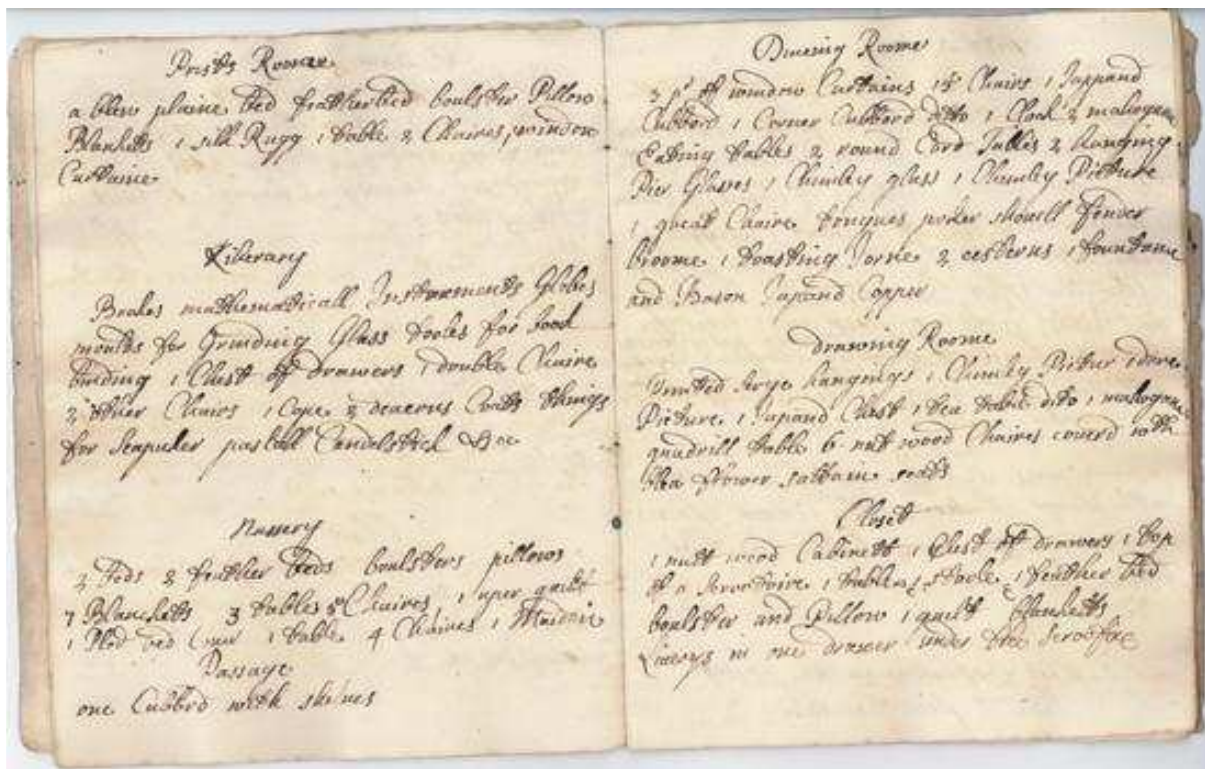 Prists Roome
a blew plaine bed featherbed boulster Pillow
Blanketts 1 silk Rugg 1 table 2 Chaires, window
Curtaine
Liberary
Bookes mathematicall Instrements Globes
moulds for Grinding Glass tooles for book
binding 1 Chest off drawers 1 double Chaire
2 other Chairs 1 Cope 2 things
for Sepulcer paskall Candelstick &c
Nursery
2 Beds 2 feather beds boulsters pillows
7 Blanketts 3 tables 5 Chaires, 1 quilt
1 bed 1 table 4 Chaires 1
Passage
one Cubbrd with shelves
Dineing Roome
3 pr off window Curtains 15 Chairs 1 Jappand
Cubbord 1 Corner Cubbord ditto 1 Clock 2 mahogane
Eating tables 2 round Card Tables 2 hanging
Pier Glasses 1 Chimley glass 1 Chimley Picture
1 great Chaire tongues poker shovell fender
broome 1 toasting Iorne 2 cesterns 1 fountaine
and Bason Japand Copper
Drawing Roome
hangings 1 Chimley Pictur 1 dore
Picture 1 Japand Chest 1 tea table dito 1 mahogane
quadrill table 6 nutt wood Chaires coverd with
flower sattain seats
Closet
1 nutt wood Cabinett 1 Chest off drawers 1 top
of a 1 table 1 stoole 1 feather bed
boulster and Pillow 1 quilt Blanketts
in one drawer under the